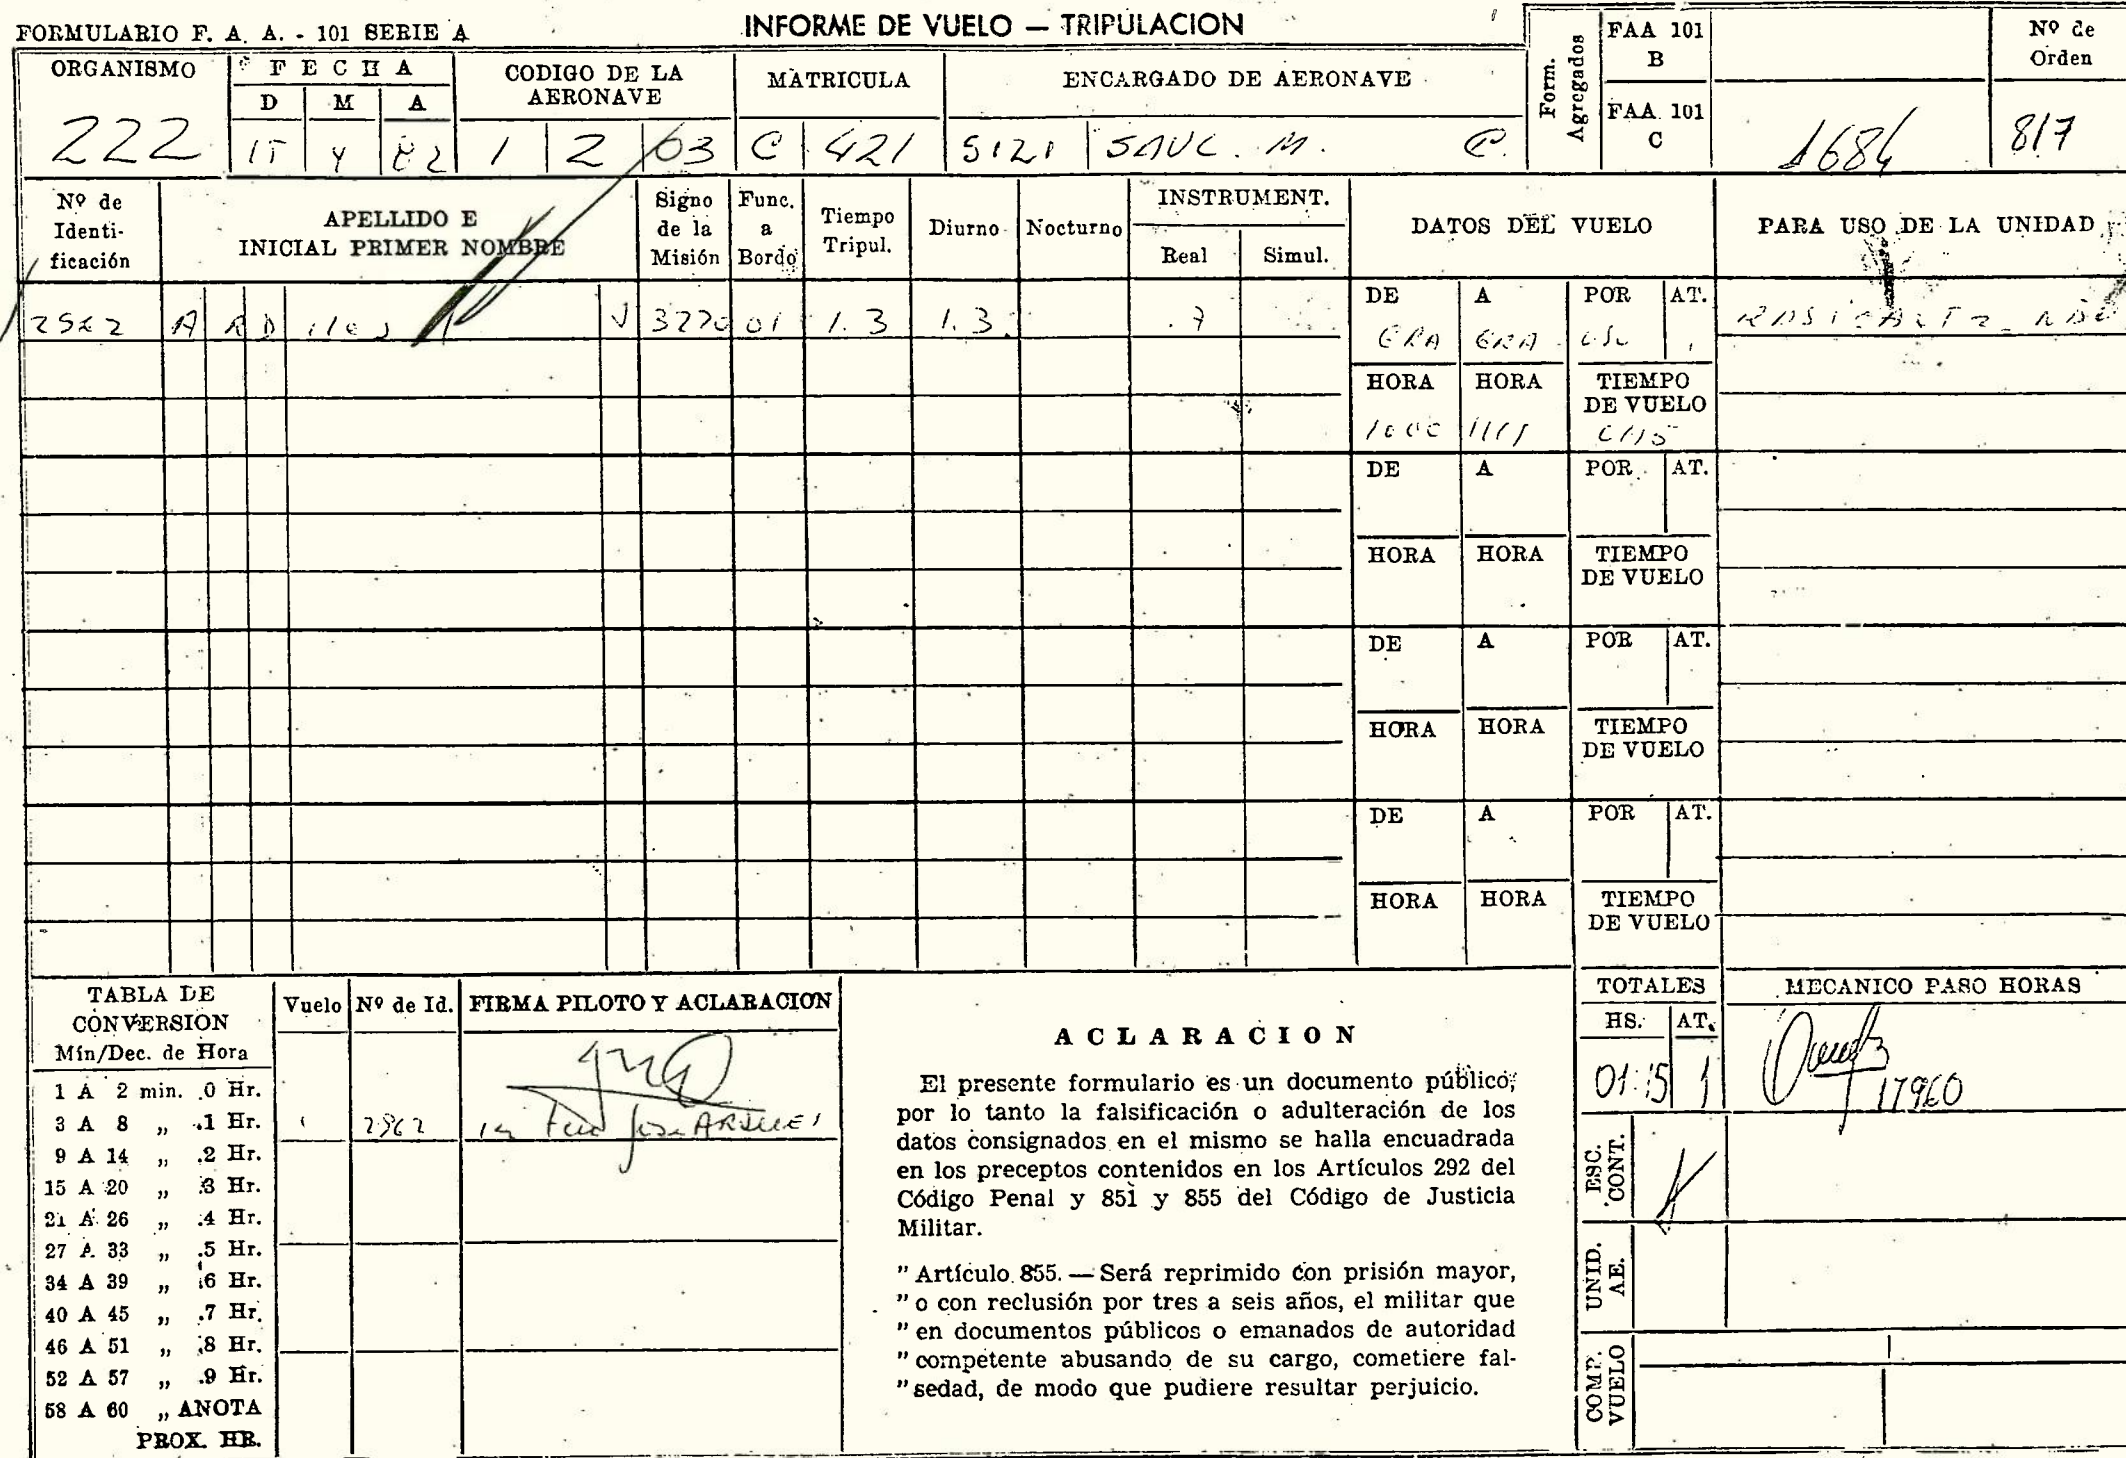 FORMULARIO F. A. A. - 101 SERIE A
INFORME DE VUELO — TRIPULACION
ORGANISMO
FECHA
D M A
CODIGO DE LA AERONAVE
MATRICULA
ENCARGADO DE AERONAVE
Form. Agregados
FAA 101 B
FAA 101 C
Nº de Orden
222
1 2 03
C 421
1684
817
Nº de Identificación
APELLIDO E INICIAL PRIMER NOMBRE
Signo de la Misión
Func. a Bordo
Tiempo Tripul.
Diurno
Nocturno
INSTRUMENT.
Real Simul.
DATOS DEL VUELO
PARA USO DE LA UNIDAD
01 1.3 1.3 .7
DE A POR AT.
HORA HORA TIEMPO DE VUELO
DE A POR AT.
HORA HORA TIEMPO DE VUELO
DE A POR AT.
HORA HORA TIEMPO DE VUELO
DE A POR AT.
HORA HORA TIEMPO DE VUELO
TABLA DE CONVERSION
Min/Dec. de Hora
1 A 2 min. .0 Hr.
3 A 8 „ .1 Hr.
9 A 14 „ .2 Hr.
15 A 20 „ .3 Hr.
21 A 26 „ .4 Hr.
27 A 33 „ .5 Hr.
34 A 39 „ .6 Hr.
40 A 45 „ .7 Hr.
46 A 51 „ .8 Hr.
52 A 57 „ .9 Hr.
58 A 60 „ ANOTA
PROX. HR.
Vuelo Nº de Id. FIRMA PILOTO Y ACLARACION
ACLARACION
El presente formulario es un documento público,
por lo tanto la falsificación o adulteración de los
datos consignados en el mismo se halla encuadrada
en los preceptos contenidos en los Artículos 292 del
Código Penal y 851 y 855 del Código de Justicia
Militar.
" Artículo 855. — Será reprimido con prisión mayor,
" o con reclusión por tres a seis años, el militar que
" en documentos públicos o emanados de autoridad
" competente abusando de su cargo, cometiere fal-
" sedad, de modo que pudiere resultar perjuicio.
TOTALES
HS. AT.
01:15 1
MECANICO PASO HORAS
17960
ESC. CONT.
UNID. AE.
COMP. VUELO